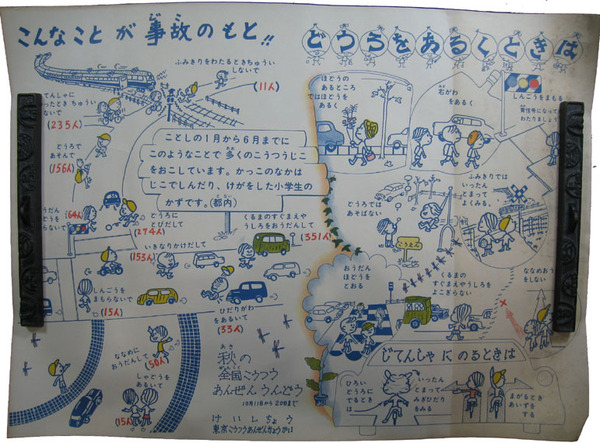 こんなことが事故のもと!!
ふみきりをわたるときちゅうい
しないで
(11人)
でんしゃに
ったとき ちゅうい
ないで
(235人)
どうろで
あそんで
(156人)
ことしの1月から6月までに
このようなことで 多くのこうつうじこ
をおこしています。かっこのなかは
じこでしんだり、けがをした小学生の
かずです。(都内)
(64人)
どうろに
とびだして
(294人)
くるまのすぐまえや
うしろをおうだんして
(351人)
いきなりかけだして
(153人)
しんごうを
まもらないで
(15人)
ひだりがわ
をあるいて
(33人)
ななめに
おうだんして
(56人)
しゃどうを
あるいて
(15人)
秋の
全国こうつう
あんぜんうんどう
10月11日から20日まで
けいしちょう
東京こうつうあんぜんきょうかい
どうろをあるくときは
ほどうの
あるところ
ではほどうを
あるく
右がわ
をあるく
しんごうをまもる
黄信号になって
わたりましょう
ふみきりでは
いったん
とまって
よくみる。
どうろでは
あそばない
ぐうえん
おうだん
ほどうを
とおる
くるまの
すぐまえやうしろを
よこぎらない
ななめおう
をしない
じてんしゃにのるときは
ひろい
どうろに
でるとき
は
いったん
とまって
みぎひだり
をみる
まがるとき
あいずを
する